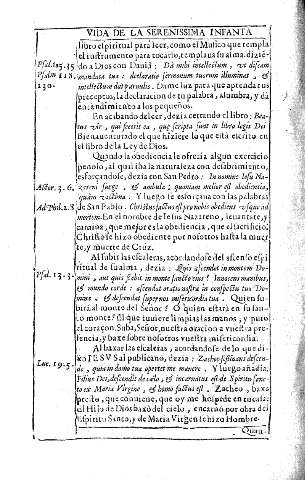 VIDA DE LA SERENISSIMA INFANTA
libro espiritual para leer, como el Musico que templa
el instrumento para tocarlo, templaua su alma, dizié-
do a Dios con Dauid: Da mihi intellectum, vt discam
mandata tua: declaratio sermonum tuorum illuminat, &
intellectum dat paruulis. Dame luz para que aprenda tus
preceptos, la declaracion de tu palabra, alumbra, y dà
entendimiento a los pequeños.
En acabando de leer, dezia cerrando el libro; Bea-
tus vir, qui fecerit ea, quæ scripta sunt in libro legis Dei
Bienauenturado el que hiziere lo que està escrito en
el libro de la Ley de Dios.
Quando la obediencia le ofrecia algun exercicio
penoso, al qual iba la naturaleza con desabrimiento,
esforçandose, dezia con San Pedro: In nomine Iesu Na-
zareni surge, & ambula: quoniam melior est obedientia,
quàm victima. Y luego se esforçaua con las palabras
de San Pablo. Christus factus est pro nobis obediens vsq; ad
mortem. En el nombre de Iesus Nazareno, leuantate, y
camina, que mejor es la obediencia, que el sacrificio:
Christo se hizo obediente por nosotros hasta la muer-
te, y muerte de Cruz.
Al subir las escaleras, acordandose del ascenso espi-
ritual de su alma, dezia: Quis ascendet in montem Do-
mini, aut quis stabit in monte sancto eius? Innocens manibus,
& mundo corde: ascendat oratio nostra in conspectu tuo Do-
mine, & descendat super nos misericordia tua. Quien su-
birà al monte del Señor? O quien estarà en su san-
to monte? El que tuuiere limpias las manos, y puro
el coraçon. Suba, Señor, nuestra oracion a vuestra pre-
sencia, y baxe sobre nosotros vuestra misericordia.
Al baxar las escaleras, acordandose de lo que di-
xo IESV Sal publicano, dezia: Zachee festinans descen-
de, quia in domo tua oportet me manere. Y luego añadia,
Filius Dei, descendit de cælo, & incarnatus est de Spiritu sanc-
to ex Maria Virgine, & homo factus est. Zacheo, baxa
presto, que conuiene, que oy me hospede en tu casa:
el Hijo de Dios baxò del cielo, encarnò por obra del
Espiritu Santo, y de Maria Virgen se hizo Hombre.
Psal. 125. 35
Psalm 118.
130.
Actor. 3. 6.
Ad Phil. 2. 8
Psal. 13. 3.
Luc. 19. 5.